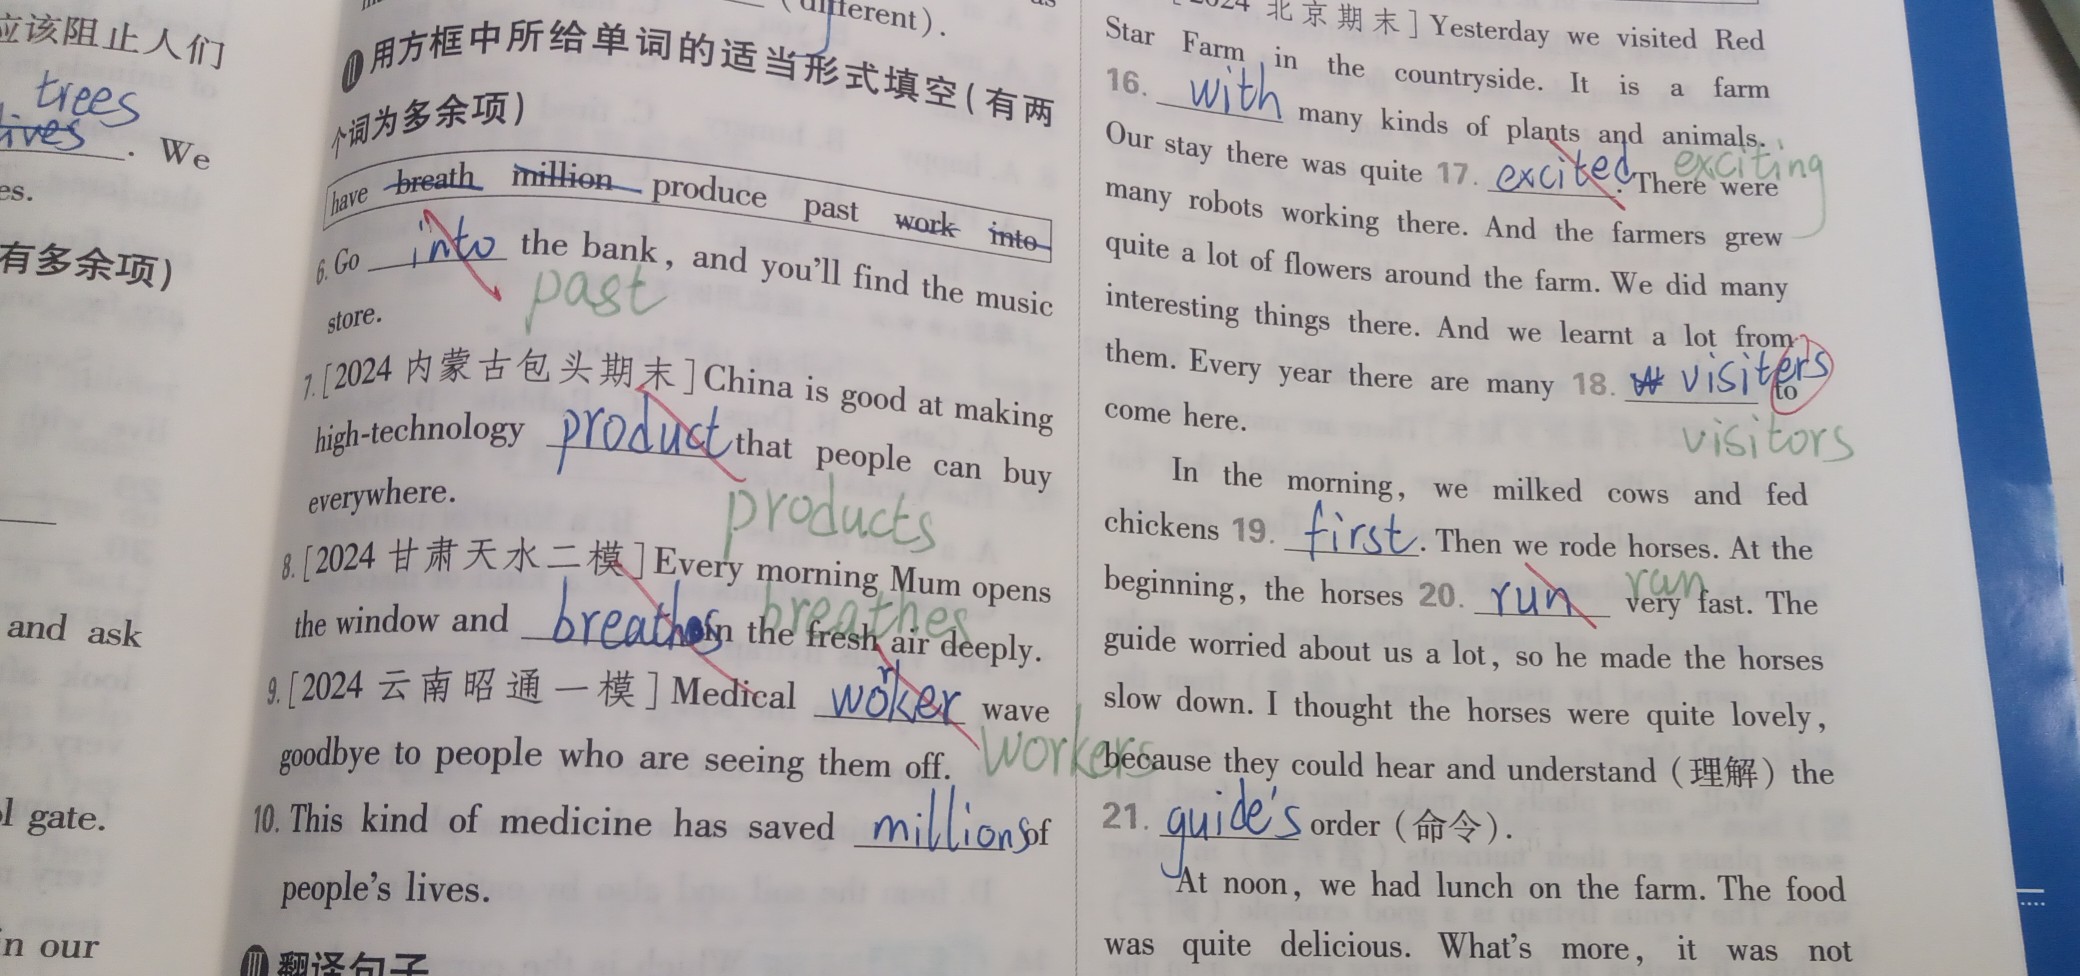 应该阻止人们
trees
lives. We
es.
有多余项)
and ask
l gate.
n our
(different).
Ⅱ 用方框中所给单词的适当形式填空(有两
个词为多余项)
have breath million produce past work into
6. Go into the bank, and you'll find the music
past
store.
7. [2024 内蒙古包头期末] China is good at making
high-technology product that people can buy
products
everywhere.
8. [2024 甘肃天水二模] Every morning Mum opens
the window and breathes in the fresh air deeply.
breathes
9. [2024 云南昭通一模] Medical worker wave
workers
goodbye to people who are seeing them off.
10. This kind of medicine has saved millions of
people's lives.
Ⅲ 翻译句子
[2024 北京期末] Yesterday we visited Red
Star Farm in the countryside. It is a farm
16. with many kinds of plants and animals.
Our stay there was quite 17. excited. There were
exciting
many robots working there. And the farmers grew
quite a lot of flowers around the farm. We did many
interesting things there. And we learnt a lot from
them. Every year there are many 18. visiters to
visitors
come here.
In the morning, we milked cows and fed
chickens 19. first. Then we rode horses. At the
beginning, the horses 20. run very fast. The
ran
guide worried about us a lot, so he made the horses
slow down. I thought the horses were quite lovely,
because they could hear and understand (理解) the
21. guide's order (命令).
At noon, we had lunch on the farm. The food
was quite delicious. What's more, it was not